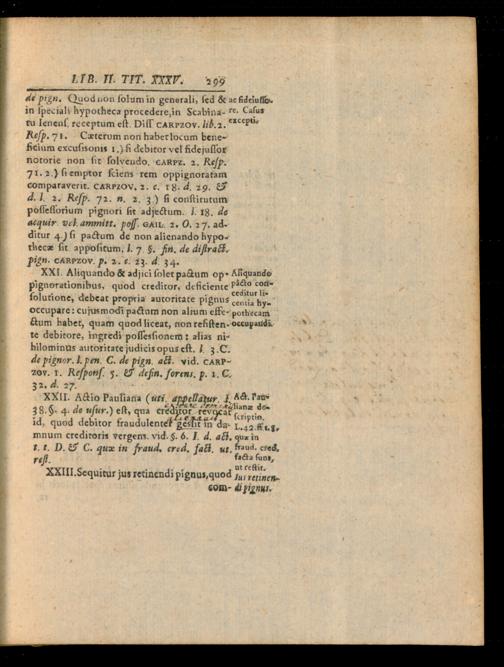 LIB. II. TIT. XXXV. 299
de pign. Quod non solum in generali, sed &
in speciali hypotheca procedere, in Scabina-
tu Ienens. receptum est. Diss CARPZOV. lib. 2.
Resp. 71. Cæterum non habet locum bene-
ficium excussionis 1.) si debitor vel fidejussor
notorie non sit solvendo. CARPZ. 2. Resp.
71. 2.) si emptor sciens rem oppignoratam
comparaverit. CARPZOV. 2. c. 18. d. 29. &
d. l. 2. Resp. 72. n. 2. 3.) si constitutum
possessorium pignori sit adjectum. l. 18. de
acquir. vel. ammitt. poss. GAIL. 2. O. 27. ad-
ditur 4.) si pactum de non alienando hypo-
thecæ sit appositum, l. 7 §. fin. de distract.
pign. CARPZOV. p. 2. c. 23. d. 34.
ac fidejusso-
re. Casus
excepti.
XXI. Aliquando & adjici solet pactum op-
pignorationibus, quod creditor, deficiente
solutione, debeat propria autoritate pignus
occupare: cujusmodi pactum non alium effe-
ctum habet, quam quod liceat, non resisten-
te debitore, ingredi possessionem; alias ni-
hilominus autoritate judicis opus est. l. 3. C.
de pignor. l. pen. C. de pign. act. vid. CARP-
ZOV. 1. Respons. 5. & defin. forens. p. 1. C.
32. d. 27.
Aliquando
pacto con-
ceditur li-
centia hy-
pothecam
occupandi.
XXII. Actio Pauliana (uti appellatur l.
38. §. 4. de usur.) est, qua creditor revocat
id, quod debitor fraudulenter gessit in da-
mnum creditoris vergens. vid. §. 6. I. d. act.
t. t. D. & C. quæ in fraud. cred. fact. ut.
rest.
Act. Pau-
lianæ de-
scriptio.
L. 42. ff. t. 8,
quæ in
fraud. cred.
facta sunt,
ut restit.
XXIII. Sequitur jus retinendi pignus, quod
com-
Ius retinen-
di pignus.